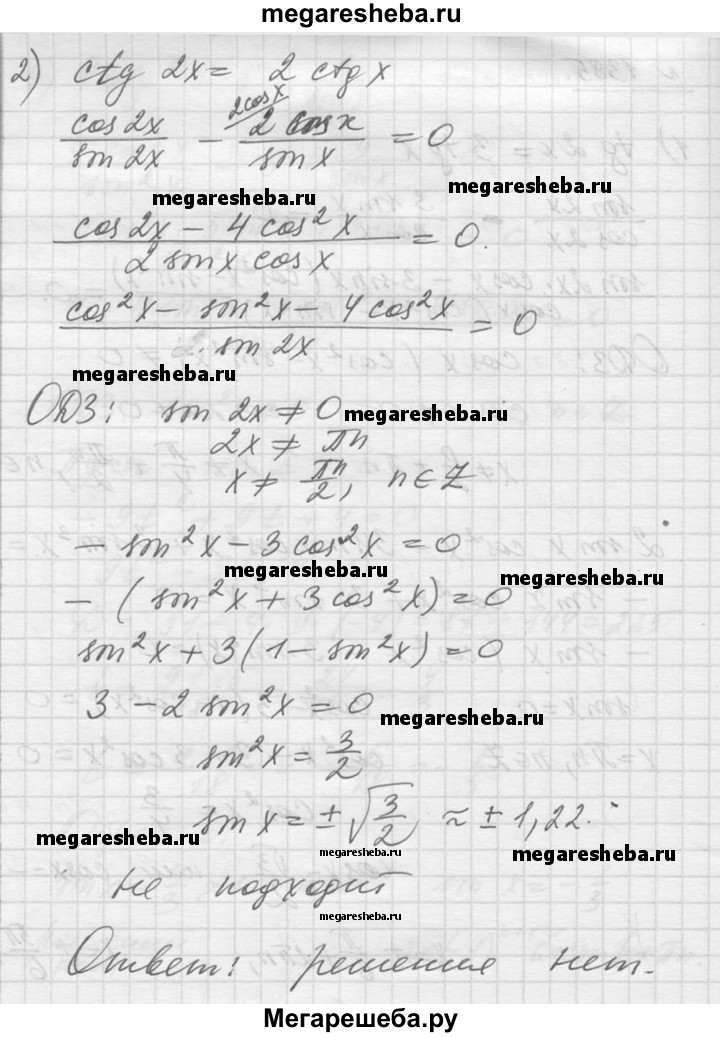 megaresheba.ru
2) ctg 2x = 2 ctg x
cos 2x / sin 2x - 2cosx / 2 cos x / sin x = 0
megaresheba.ru megaresheba.ru
cos 2x - 4 cos²x / 2 sin x cos x = 0.
cos²x - sin²x - 4 cos²x / sin 2x = 0
megaresheba.ru
ОДЗ: sin 2x ≠ 0 megaresheba.ru
2x ≠ πn
x ≠ πn/2, n ∈ Z
- sin²x - 3 cos²x = 0
megaresheba.ru megaresheba.ru
- (sin²x + 3 cos²x) = 0
sin²x + 3(1 - sin²x) = 0
3 - 2 sin²x = 0
megaresheba.ru
sin²x = 3/2
sin x = ± √3/2 ≈ ± 1,22.
megaresheba.ru megaresheba.ru megaresheba.ru
не подходит
megaresheba.ru
Ответ: решения нет.
Мегарешеба.ру